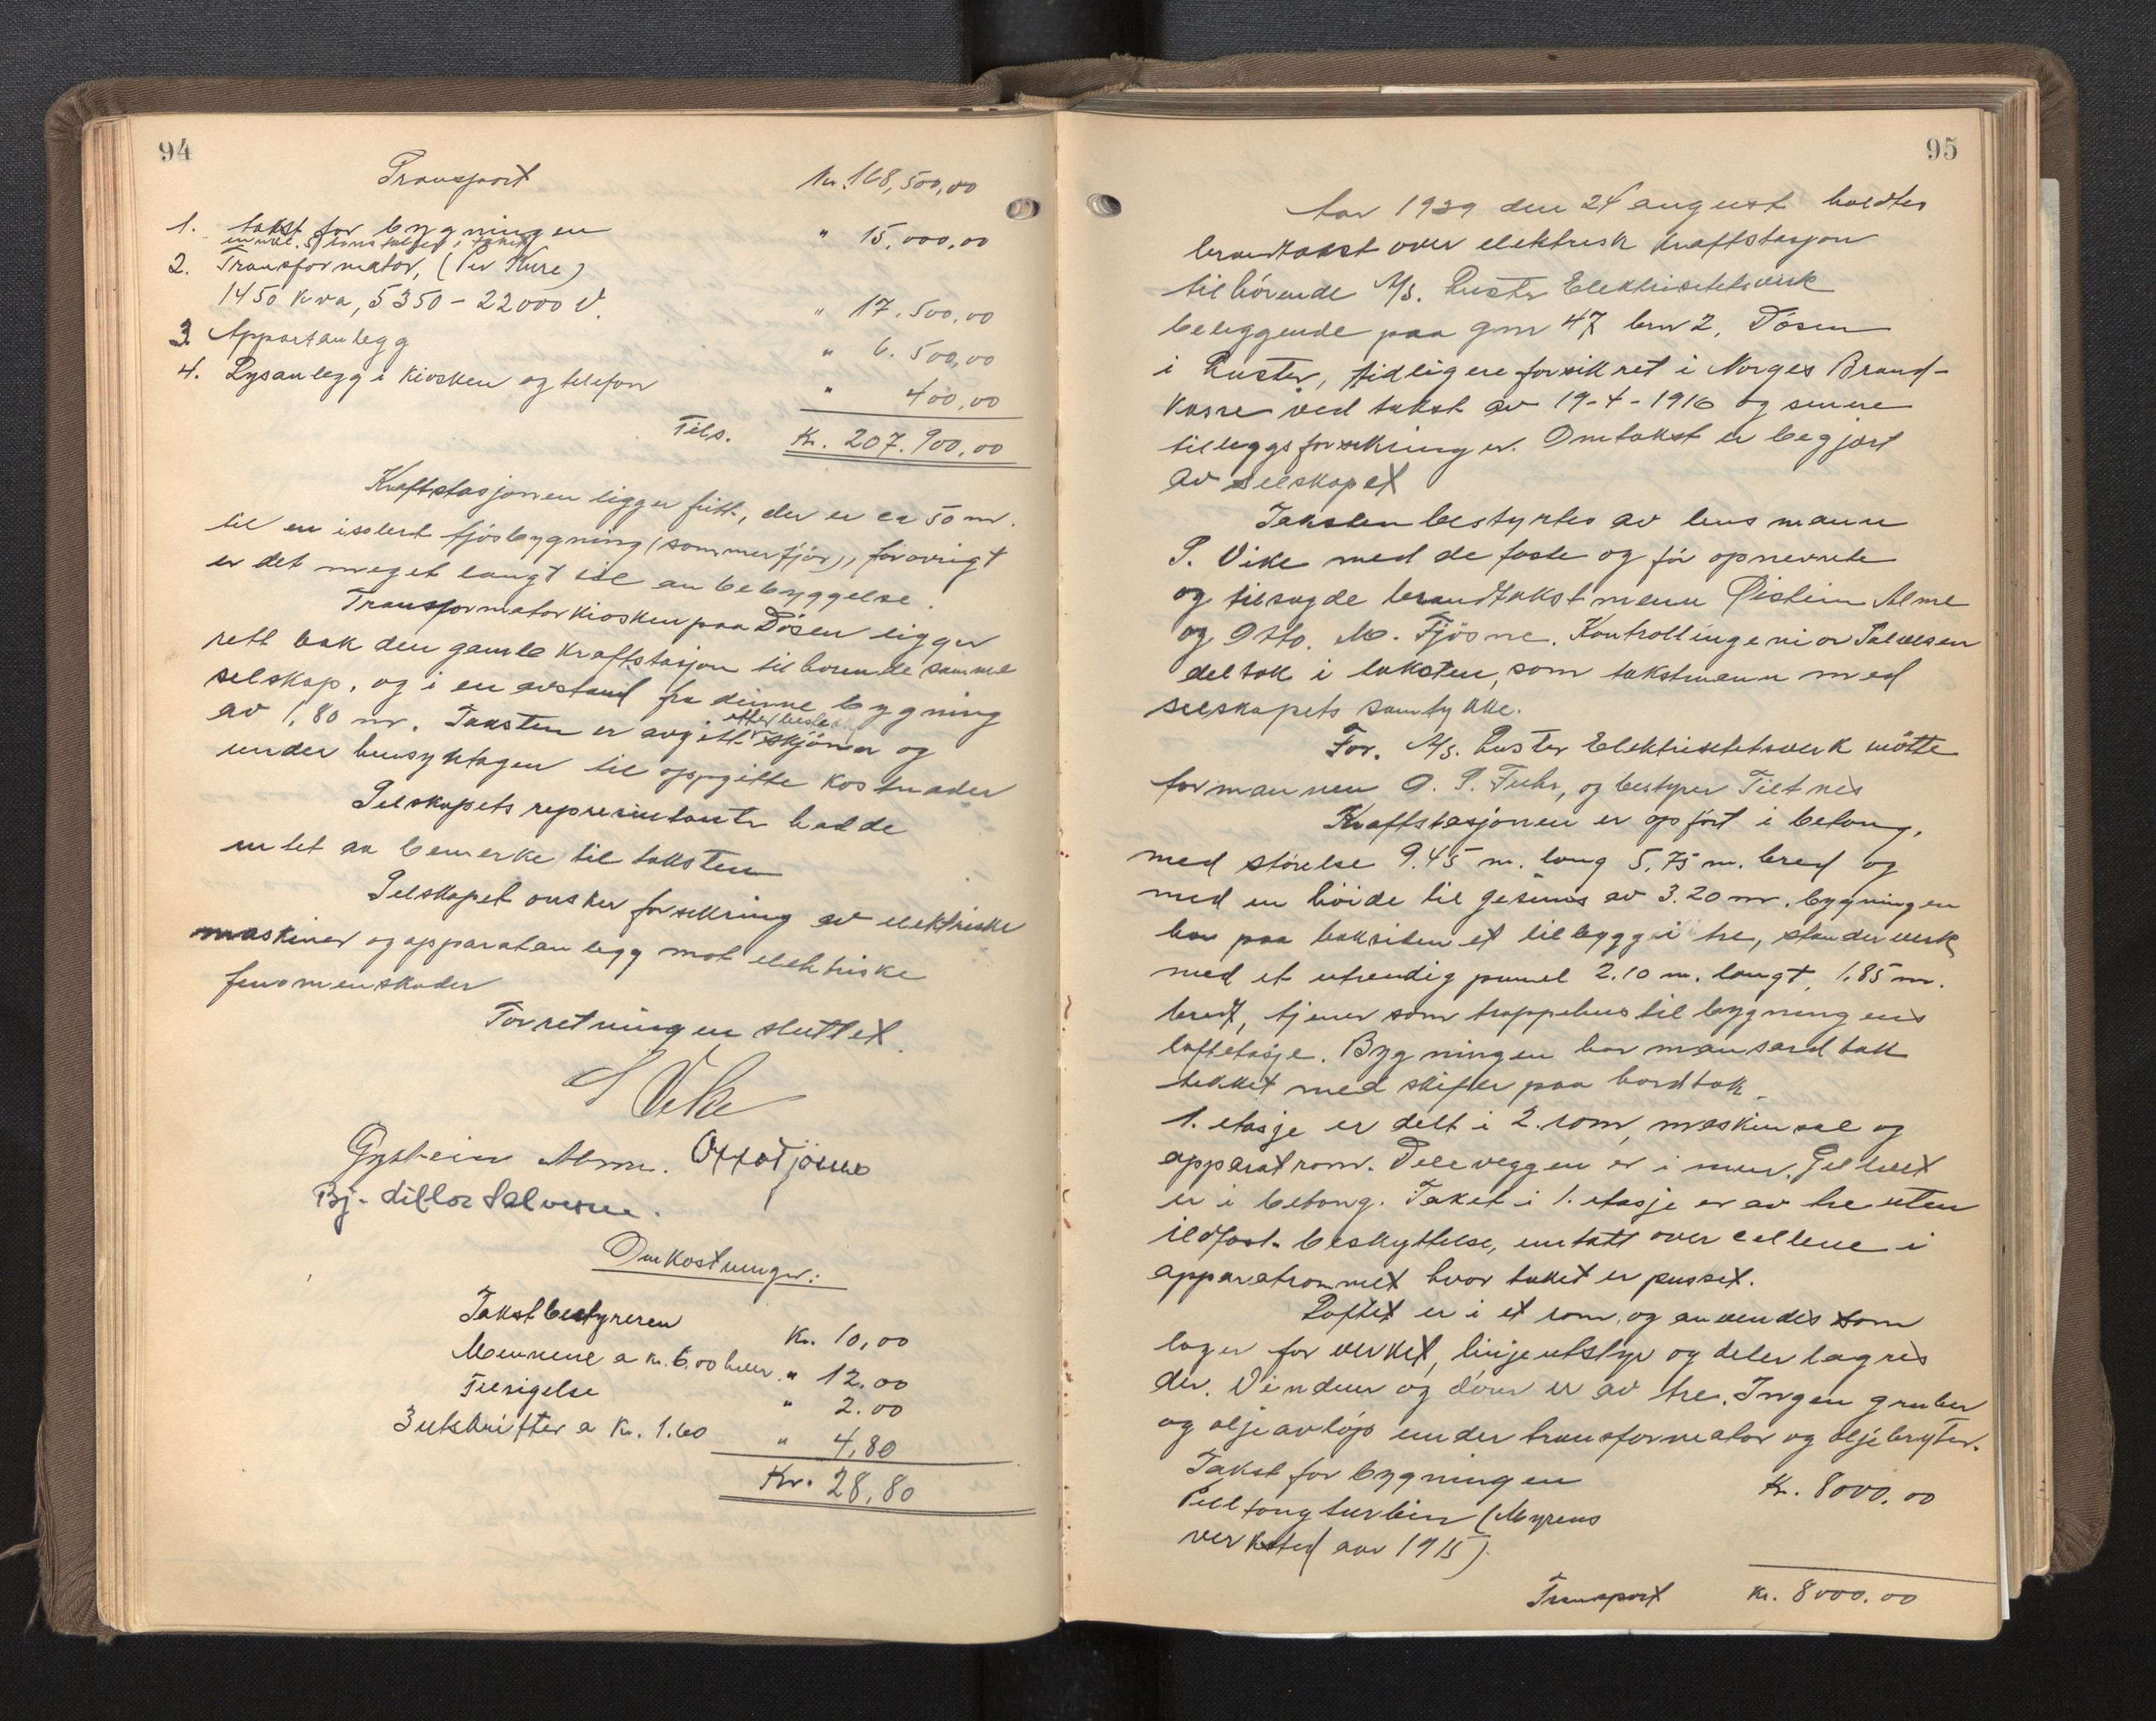 94
Transport Kr. 168,500,00
1. takst for bygningen " 15,000,00
2. Transformator, (Per Kure)
1450 kva, 5350 - 22000 V. " 17.500,00
3. Appartanlegg " 6.500,00
4. Lysanlegg i kiosken og telefon " 400,00
Tils. Kr. 207.900,00
Kraftstasjonen ligger fritt, der er ca 50 m.
til en isolert fjösbygning (sommerfjös), forövrigt
er det meget langt til an bebyggelse.
Transformatorkiosken paa Dösen ligger
rett bak den gamle kraftstasjon tilhörende samme
selskap, og i en avstand fra denne bygning
av 1,80 m. Taksten er avgitt etter beste skjönn og
under hensyntagen til oppgitte kostnader
Selskapets representanter hadde
intet aa bemerke til taksten
Selskapet önsker forsikring av elektriske
maskiner og apparatanlegg mot elektriske
fenomenskader
Forretningen sluttet.
S Vike
Øystein Alme. Otto Fjösne
Bj. Ditlor Salvesen.
Omkostninger:
Takstbestyreren Kr. 10,00
Mennene a kr. 6.00 hver " 12.00
Tilsigelse " 2.00
3 utskrifter a Kr. 1.60 " 4,80
Kr. 28,80
95
Aar 1939 den 24 august holdtes
brandtakst over elektrisk kraftstasjon
tilhörende A/S. Luster Elektrisitetsverk
beliggende paa gnr 47 brn 2, Dösen
i Luster, tidligere forsikret i Norges Brand-
kasse ved takst av 19-4-1916 og senere
tilleggsforsikringer. Omtakst er begjært
av selskapet
Taksten bestyrtes av lensmann
S. Vike med de faste og för opnevnte
og tilsagde brandtakstmenn Øistein Alme
og Otto. M. Fjösne. Kontrollingeniör Salvesen
deltok i taksten, som takstmann med
selskapets samtykke.
For. A/S. Luster Elektrisitetsverk mötte
formannen O. S. Fuhr, og bestyrer Tiltnes
Kraftstasjonen er opfört i betong,
med störelse 9.45 m. lang 5,75 m. bred og
med en höide til gesims av 3.20 m. bygningen
har paa baksiden et tilbygg i tre, stenderverk
med et utvendig panel 2.10 m. langt, 1.85 m.
bredt, tjener som trappehus til bygningens
loftetasje. Bygningen har mansard tak
tekket med skifer paa bordtak.
1. etasje er delt i 2. rom, maskinsal og
apparatrom. Deleveggen er i mur. Gulvet
er i betong. Taket i 1. etasje er av tre uten
ildfast beskyttelse, untatt over cellene i
apparatrommet hvor taket er pusset.
Loftet er i et rom, og anvendes som
lager for verket, linjeutstyr og deler lagres
der. Vinduer og dörer er av tre. Ingen gruber
og oljeavlöp under transformator og oljebryter.
Takst for bygningen Kr. 8000.00
Peltongturbin (Myrens
verksted aar 1915).
Transport Kr. 8000.00